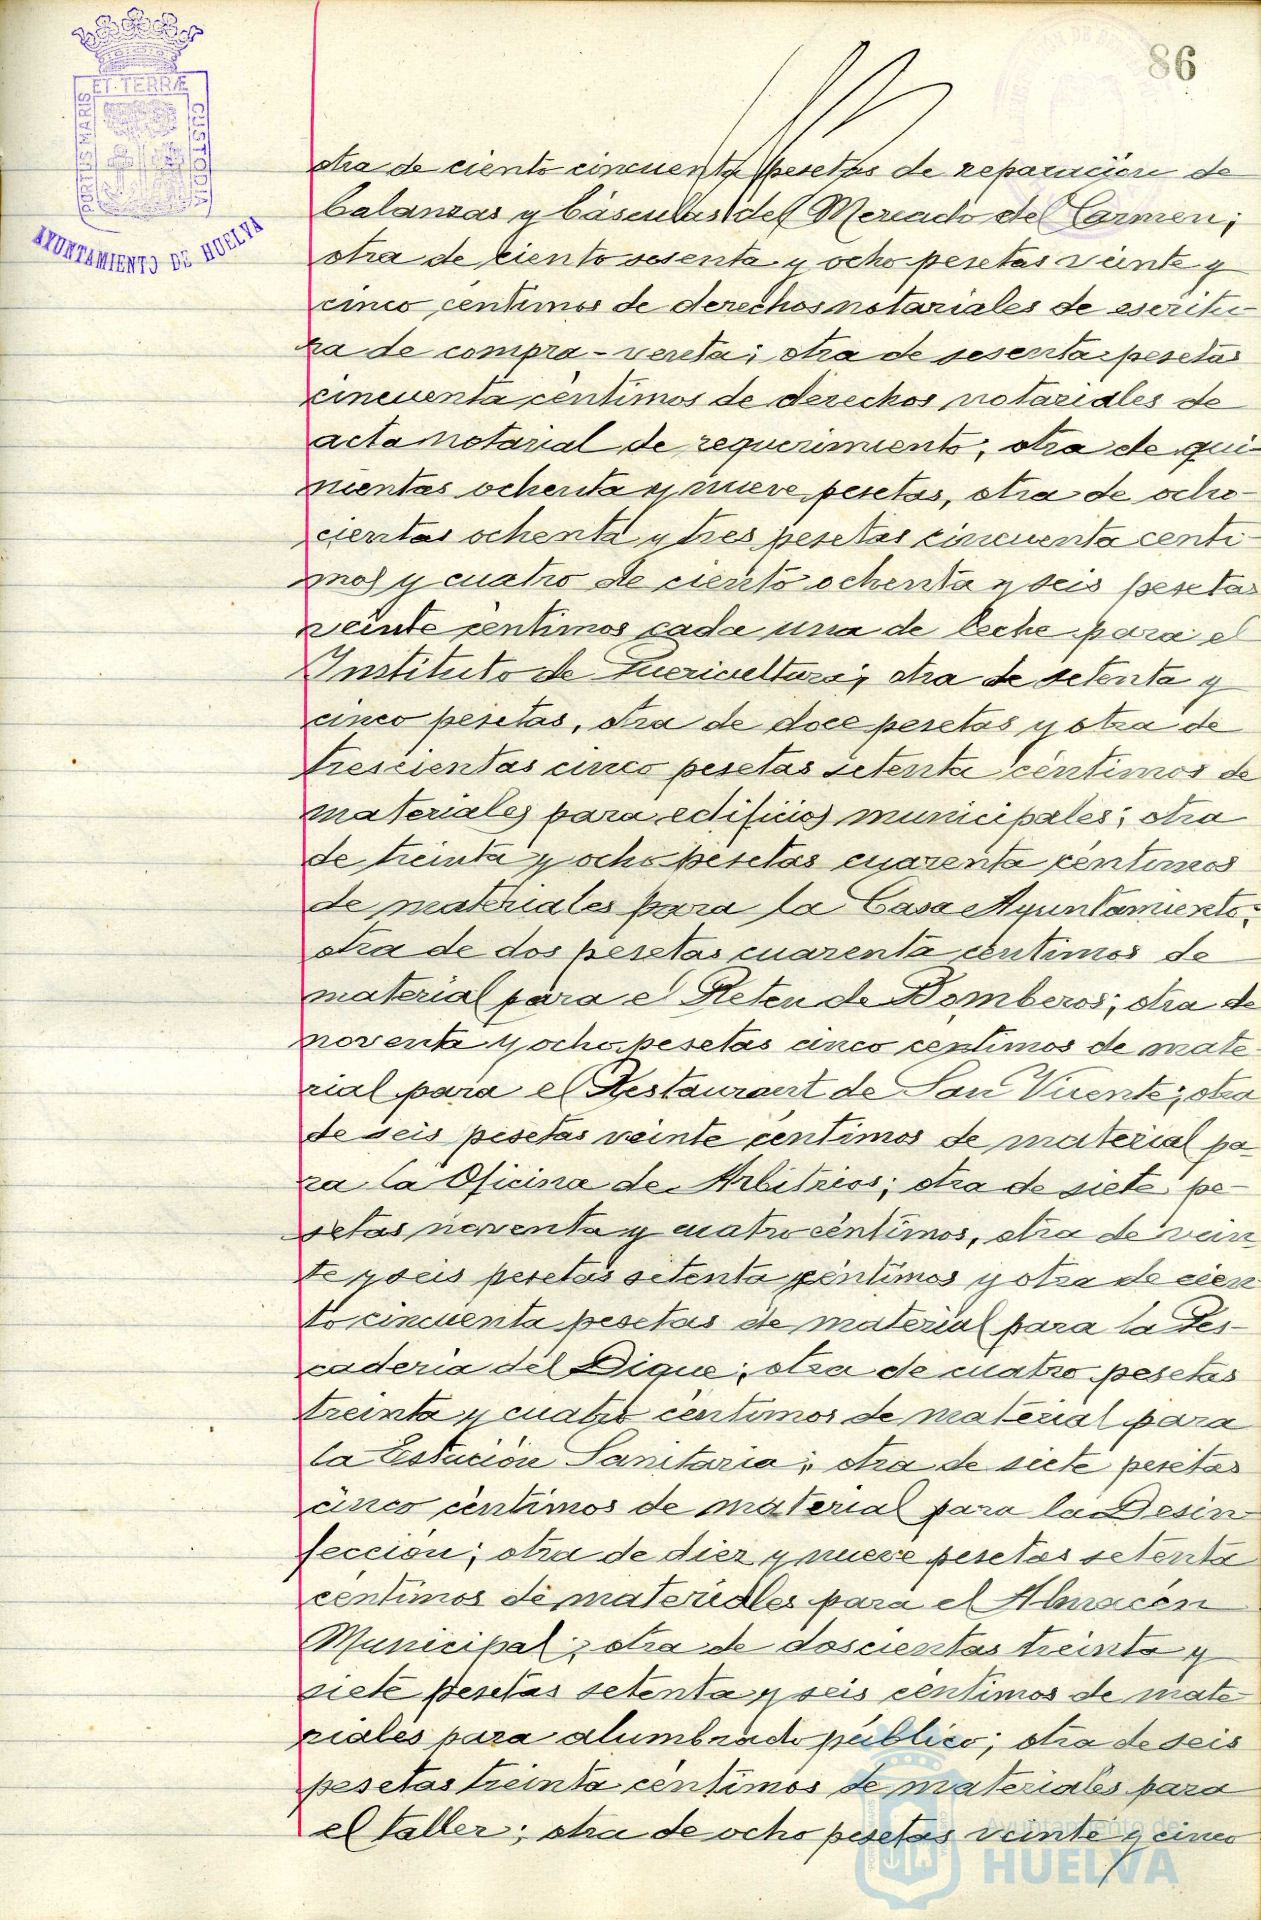 86
PORTUS MARIS ET TERRÆ CUSTODIA
AYUNTAMIENTO DE HUELVA
otra de ciento cincuenta pesetas de reparación de
balanzas y básculas del Mercado del Carmen;
otra de ciento sesenta y ocho pesetas veinte y
cinco centimos de derechos notariales de escritu-
ra de compra-venta; otra de sesenta pesetas
cincuenta céntimos de derechos notariales de
acta notarial de requerimiento; otra de qui-
nientas ochenta y nueve pesetas, otra de ocho-
cientas ochenta y tres pesetas cincuenta centi-
mos y cuatro de ciento ochenta y seis pesetas
veinte céntimos cada una de leche para el
Instituto de Puericultura; otra de setenta y
cinco pesetas, otra de doce pesetas y otra de
trescientas cinco pesetas setenta céntimos de
materiales para edificios municipales; otra
de treinta y ocho pesetas cuarenta céntimos
de materiales para la Casa Ayuntamiento;
otra de dos pesetas cuarenta céntimos de
material para el Reten de Bomberos; otra de
noventa y ocho pesetas cinco centimos de mate-
rial para el Restaurant de San Vicente; otra
de seis pesetas veinte céntimos de material pa-
ra la Oficina de Arbitrios; otra de siete pe-
setas noventa y cuatro céntimos, otra de vein-
te y seis pesetas setenta céntimos y otra de cien-
to cincuenta pesetas de material para la Pes-
cadería del Dique; otra de cuatro pesetas
treinta y cuatro céntimos de material para
la Estación Sanitaria; otra de siete pesetas
cinco céntimos de material para la Desin-
fección; otra de diez y nueve pesetas setenta
céntimos de materiales para el Almacén
Municipal; otra de doscientas treinta y
siete pesetas setenta y seis céntimos de mate-
riales para alumbrado público; otra de seis
pesetas treinta céntimos de materiales para
el taller; otra de ocho pesetas veinte y cinco
Ayuntamiento de
HUELVA